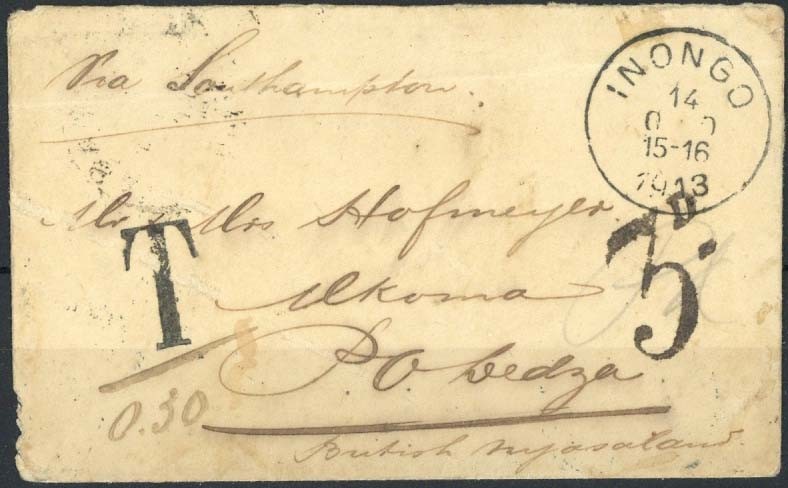 Via Southampton.
INONGO
14
O O
15-16
1913
Mr & Mrs Hofmeyer.
Mkoma
P.O. Dedza.
British Nyasaland.
T
0.30
5 D.